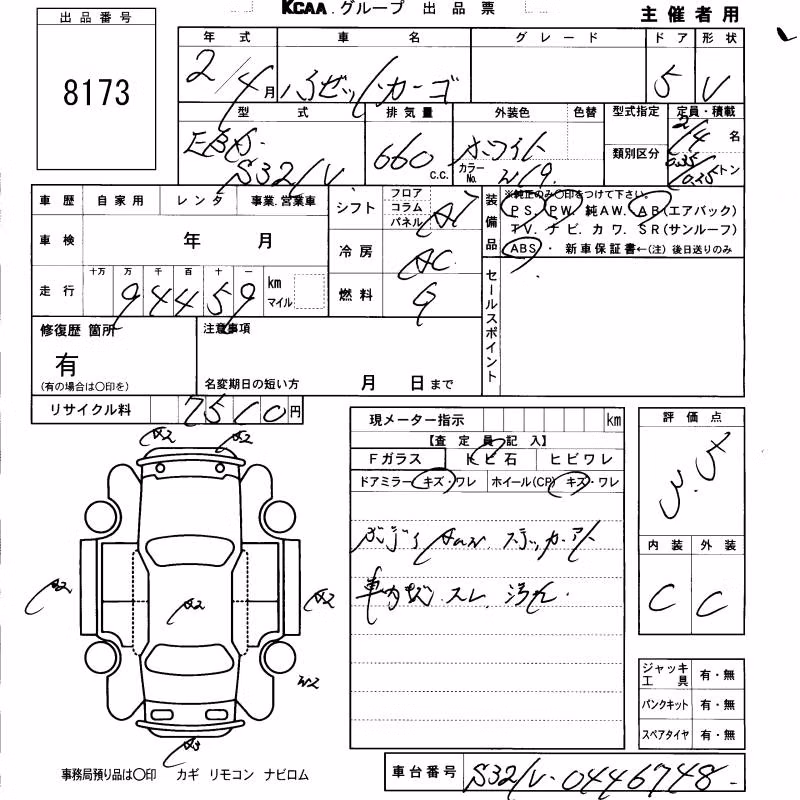 KCAA.グループ 出品票
主催者用
出品番号
8173
年式 車名 グレード ドア 形状
2/4月 ハイゼットカーゴ 5 V
型式 排気量 外装色 色替 型式指定 定員・積載
類別区分
EBD
S321V 660 c.c. ホワイト カラーNo. 2/4 名
0.35/0.25トン
車歴 自家用 レンタ 事業.営業車
車検 年 月
走行 十万 万 千 百 十 一
94459 km マイル
シフト フロア コラム パネル AT
冷房 AC
燃料 G
装備品
※純正のみ○印をつけて下さい。
PS. PW. 純AW. AB(エアバック)
TV. ナビ. カワ. SR(サンルーフ)
ABS ・ 新車保証書←(注) 後日送りのみ
セールスポイント
修復歴 箇所
有
(有の場合は○印を)
注意事項
名変期日の短い方 月 日まで
リサイクル料 7510円
現メーター指示 km
【査定員記入】
Fガラス トビ石 ヒビワレ
ドアミラー キズ・ワレ ホイール(CP) キズ・ワレ
ボディ ステッカーアト
車内 キズ. スレ. 汚れ.
評価点
3.5
内装 外装
C C
A2 A2
A2 A2 A2
A3
ジャッキ工具 有・無
パンクキット 有・無
スペアタイヤ 有・無
事務局預り品は○印 カギ リモコン ナビロム
車台番号 S321V-0446748